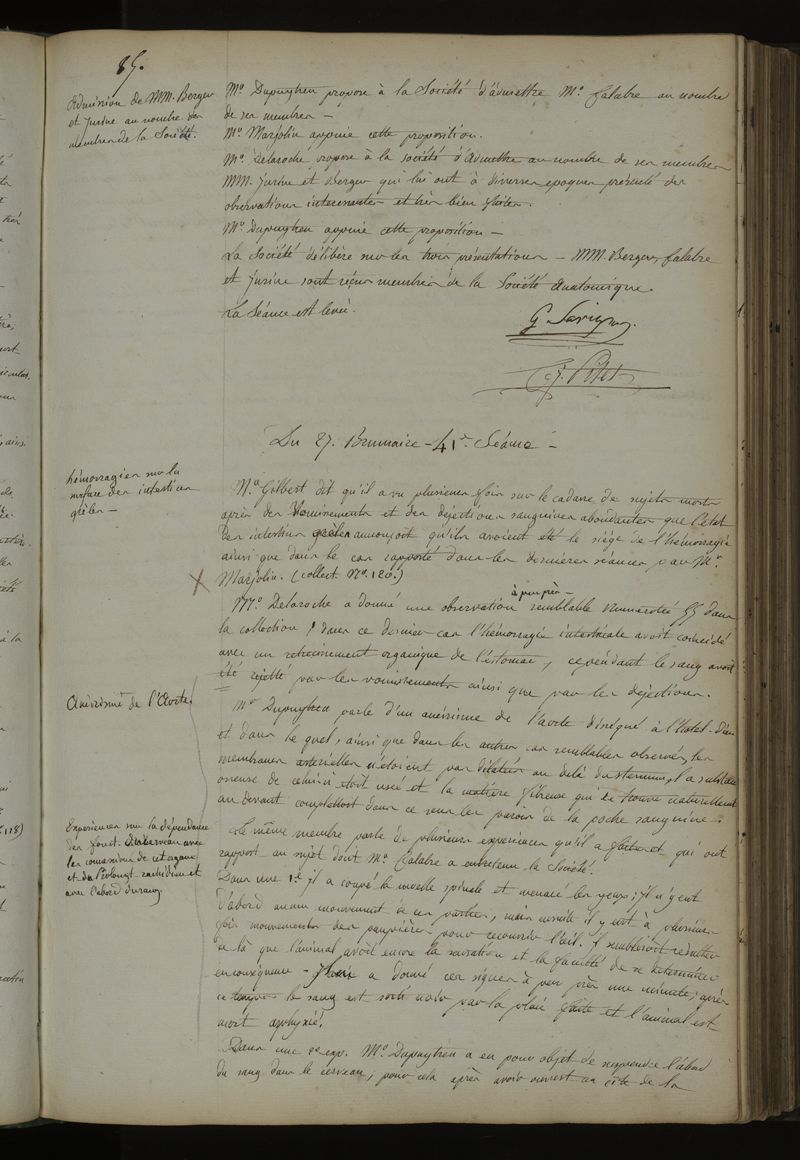 85.
Admission de MM. Berger
et Jurine au nombre des
membres de la Société.
Mr. Dupuytren propose à la Société d'admettre Mr. falabre au nombre
de ses membres —
Mr. Marjolin appuie cette proposition.
Mr. Delaroche propose à la société d'admettre au nombre de ses membres
MM. Jurine et Berger qui lui ont à diverses époques présenté des
observations interessantes et très bien faites.
Mr. Dupuytren appuie cette proposition —
La Société délibère sur les trois présentations — MM. Berger, falabre
et Jurine sont reçus membres de la Société Anatomique.
La Séance est levée.
G. Savigny
Du 27. Brumaire — 41e. Séance —
hémorragies sur la
surface des intestins
grêles —
Mr. Gilbert dit qu'il a vu plusieurs fois sur le cadavre de sujets morts
après des Vomissements et des dejections sanguines abondantes que l'état
des intestins grêles annonçoit qu'ils avoient été le siège de l'hémorragie
ainsi que dans le cas rapporté dans les dernières séances par Mr.
Marjolin. (collect. No. 120.)
à peu près —
Mr. Delaroche a donné une observation semblable Numerotée 55 dans
la collection; dans ce dernier cas l'hémorragie intestinale avoit coincidé
avec un retrecissement organique de l'estomac, cependant le sang avoit
été rejetté par les vomissements ainsi que par les dejections.
Anévrisme de l'Aorte
Mr. Dupuytren parle d'un anévrisme de l'aorte disséqué à l'hotel-Dieu
et dans le quel, ainsi que dans les autres cas semblables observés, les
membranes arterielles n'étoient pas dilatées au delà du sternum, la substance
osseuse de celui-ci étoit usée et la matière fibreuse qui se trouve naturellement
au devant completoit dans ce sens les parois de la poche sanguine.
Experiences sur la dépendance
des fonct. du cerveau avec
les connexions de cet organe
et du Prolongt rachidien et
avec l'abord du sang
Le même membre parle de plusieurs experiences qu'il a faites et qui ont
rapport au sujet dont Mr. falabre a entretenu la Société.
Dans une 1re. il a coupé la moelle spinale et menacé les yeux; il n'y eut
d'abord aucun mouvement de ces parties, mais ensuite il y eut à plusieurs
fois mouvements des paupières pour recouvrir l'œil. Il sembleroit résulter
de là que l'animal avoit encore la sensation et la faculté de se determiner
en conséquence — a donné ces signes à peu près une minute; après
ce temps le sang est sorti noir par la plaie faite et l'animal est
mort asphyxié.
Dans une 2e exp. Mr. Dupuytren a eu pour objet de suspendre l'abord
du sang dans le cerveau, pour cela après avoir ouvert un côté de la